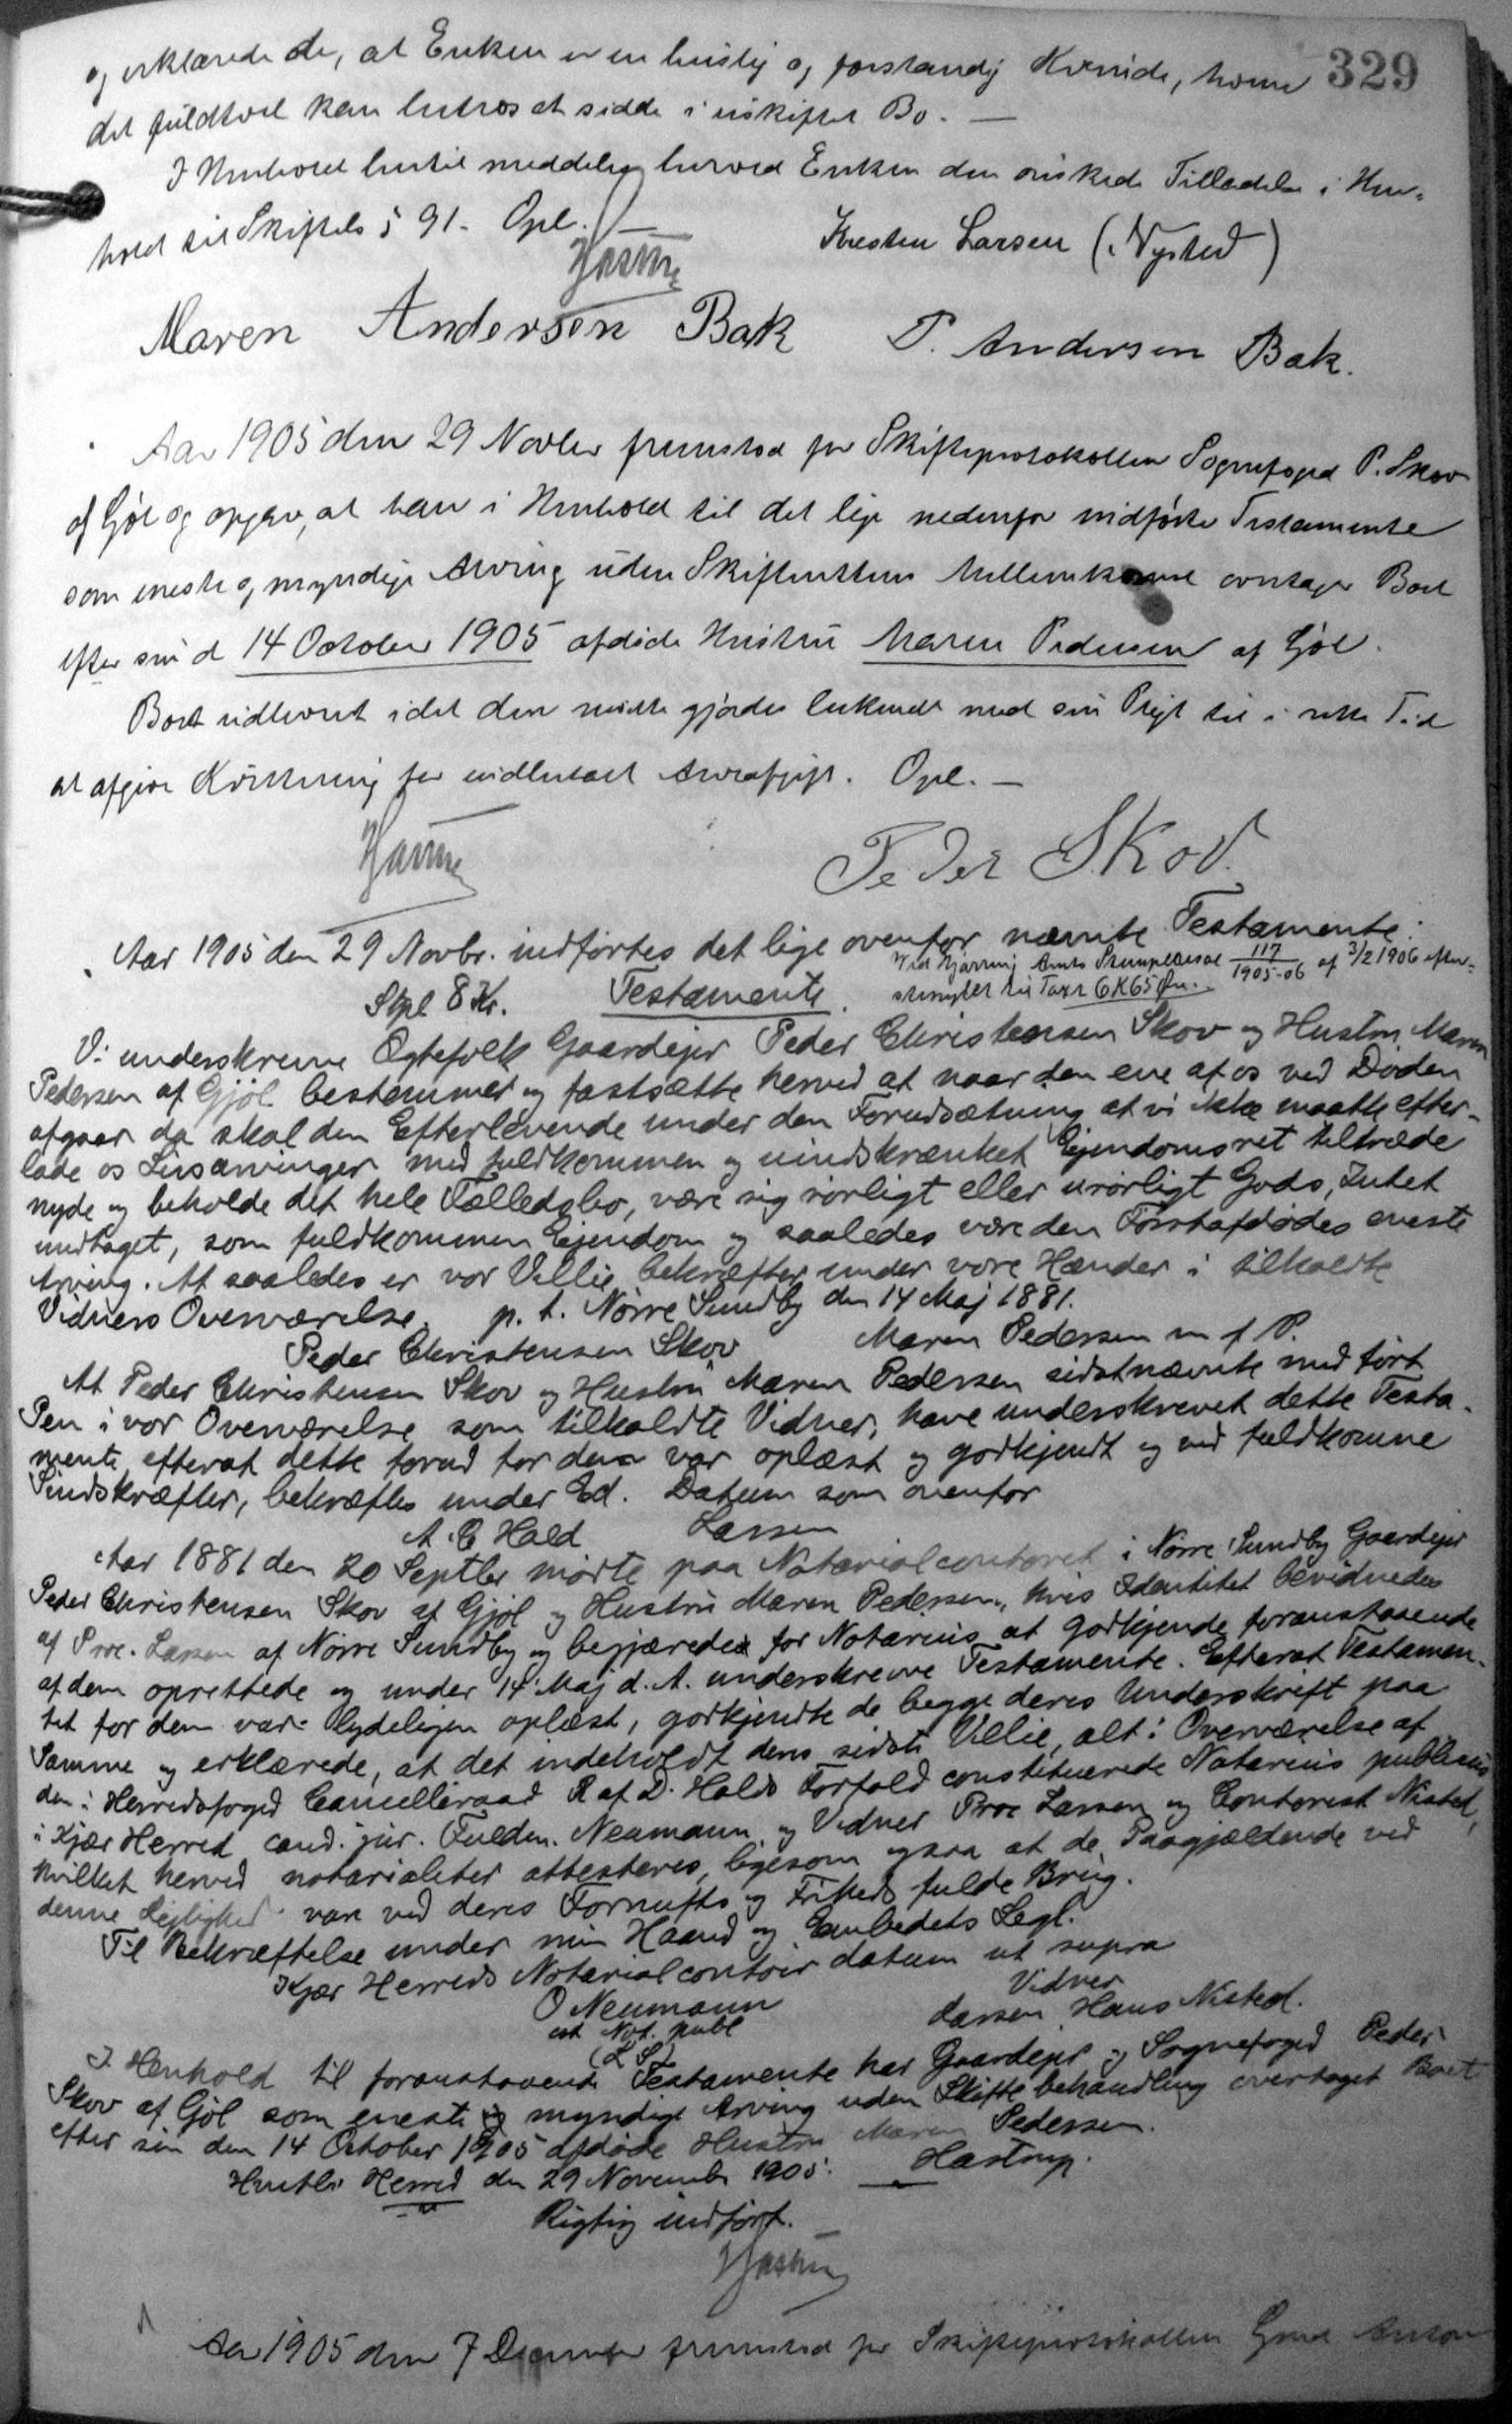 329
og erklærede de, at Enken er en huslig og forstandig Kvinde, hvem
det fuldtvel kan betros at sidde i uskiftet Bo. —
I Henhold hertil meddeles herved Enken den ønskede Tilladelse i Hen-
hold til Skiftels § 91. Opl. —
Kresten Larsen (i Nysted)
Hastrup
Maren Andersen Bak P. Andersen Bak.
Aar 1905 den 29 Novber fremstod for Skifteprotokollen Sognefoged P. Skov
af Gjøl og opgav, at han i Henhold til det lige nedenfor indførte Testamente
som eneste og myndige Arving uden Skifterettens Mellemkomst overtager Boet
efter sin d 14 October 1905 afdøde Hustru Maren Pedersen af Gjøl.
Boet udleveret idet den mødte gjordes bekendt med sin Pligt til i rette Tid
at afgive Kvittering for indbetalt Arveafgift. Opl. —
Hastrup
Peder Skov.
Aar 1905 den 29 Novbr. indførtes det lige ovenfor nævnte Testamente:
Ved Hjørring Amts Stempelkasse 117/1905-06 af 3/2 1906 efter-
Stpl 8 Kr. Testamente. stemplet til Taxt 6 K 65 Øre.
Vi underskrevne Ægtefolk Gaardejer Peder Christensen Skov og Hustru Maren
Pedersen af Gjøl bestemmer og fastsætte herved at naar den ene af os ved Døden
afgaar da skal den Efterlevende under den Forudsætning at vi ikke maatte efter-
lade os Livsarvinger med fuldkommen og uindskrænket Ejendomsret tiltræde
nyde og beholde det hele Fælledsbo, være sig rørligt eller urørligt Gods, Intet
undtaget, som fuldkommen Ejendom og saaledes være den Førstafdødes eneste
Arving. At saaledes er vor Villie bekræfter under vore Hænder i tilkaldte
Vidners Overværelse. p. t. Nørre Sundby den 14 Maj 1881.
Peder Christensen Skov Maren Pedersen m f P.
At Peder Christensen Skov og Hustru Maren Pedersen sidstnævnte med ført
Pen i vor Overværelse som tilkaldte Vidner, have underskrevet dette Testa-
mente, efterat dette forud for dem var oplæst og godkjendt og ved fuldkomne
Sindskræfter, bekræftes under Ed. Datum som ovenfor
A. C Hald Larsen
Aar 1881 den 20 Septber mødte paa Notarialcontoret i Nørre Sundby Gaardejer
Peder Christensen Skov af Gjøl og Hustru Maren Pedersen, hvis Identitet bevidnedes
af Proc. Larsen af Nørre Sundby og begjærede for Notarius at godkjende foranstaaende
af dem oprettede og under 14 Maj d. A. underskrevne Testamente. Efterat Testamen-
tet for dem var tydeligen oplæst, godkjendte de begge deres Underskrift paa
Samme og erklærede, at det indeholdt deres sidste Villie, alt i Overværelse af
den i Herredsfoged Cancelliraad R af D. Halds Forfald constituerede Notarius publicus
i Kjær Herred cand. jur. Fuldm. Neumann og Vidner Proc Larsen og Contorist Nisted,
hvilket herved notarialiter attesteres, ligesom ogsaa at de Paagjældende ved
denne Lejlighed vare ved deres Fornufts og Friheds fulde Brug.
Til Bekræftelse under min Haand og Embedets Segl.
Kjær Herreds Notarialcontoir datum ut supra
O Neumann Vidner
cst Not. publ Larsen Hans Nisted.
(L S)
I Henhold til foranstaaende Testamente har Gaardejer og Sognefoged Peder
Skov af Gjøl som eneste og myndige Arving uden Skiftebehandling overtaget Boet
efter sin den 14 October 1905 afdøde Hustru Maren Pedersen.
Hvetbo Herred den 29 November 1905. Hastrup.
Rigtig indført.
Hastrup
Aar 1905 den 7 December fremstod for Skifteprotokollen Grd Anton